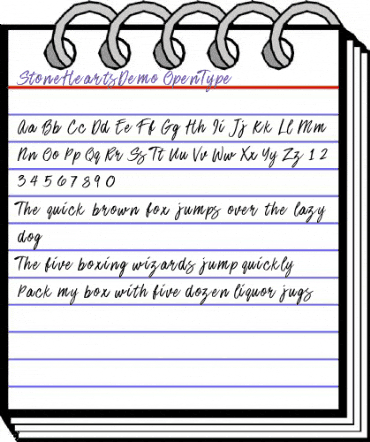 StoneHeartsDemo OpenType
Aa Bb Cc Dd Ee Ff Gg Hh Ii Jj Kk Ll Mm
Nn Oo Pp Qq Rr Ss Tt Uu Vv Ww Xx Yy Zz 1 2
3 4 5 6 7 8 9 0
The quick brown fox jumps over the lazy
dog
The five boxing wizards jump quickly
Pack my box with five dozen liquor jugs